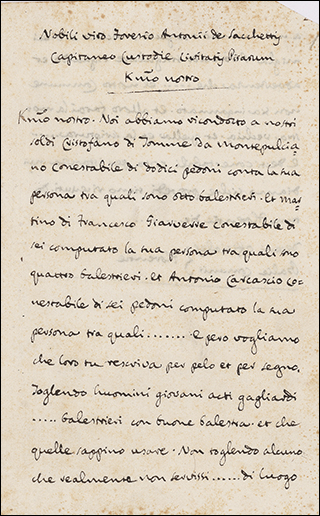 Nobili viro Foverio Antonii de Sacchetty
Capitaneo Custodie Civitaty Pisarum
Kmo nostro
Kmo nostro. Noi abbiamo ricondocto a nostri
soldi Cristofano di Tomme da montepulcia=
no conestabile di dodici pedoni conta la sua
persona tra quali sono otto balestrieri. Et mar=
tino di Francesco Giaverre conestabile di
sei computato la sua persona tra quali sono
quattro balestrieri. Et Antonio Carcascio co=
nestabile di sei pedoni computato la sua
persona tra quali ........ E pero vogliamo
che loro tu rescriva per pelo et per segno,
Toglendo huomini giovani acti gagliardi
..... balestrieri con buone balestra. et che
quelle sappino usare. Non toglendo alcuno
che realmente non servissi ...... di luogo